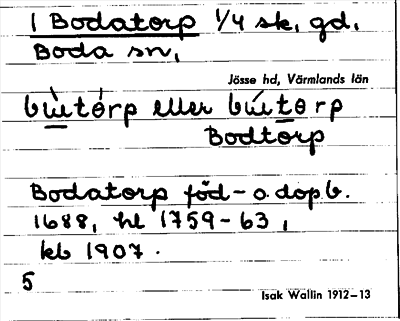 1 Bodatorp 1/4 sk, gd,
Boda sn,
Jösse hd, Värmlands län
bu̇tȯrp eller bútorp
Bodtorp
Bodatorp föd- o. dop b.
1688, hl 1759-63,
kb 1907.
5
Isak Wallin 1912-13